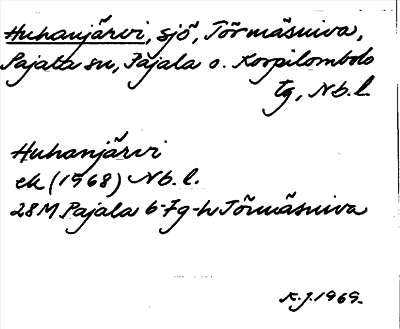 Huhanjärvi, sjö, Törmäsniva,
Pajala sn, Pajala o. Korpilombolo
tg, Nb.l.
Huhanjärvi
ek (1968) Nb.l.
28M Pajala 6-7g-h Törmäsniva
K.J. 1969.